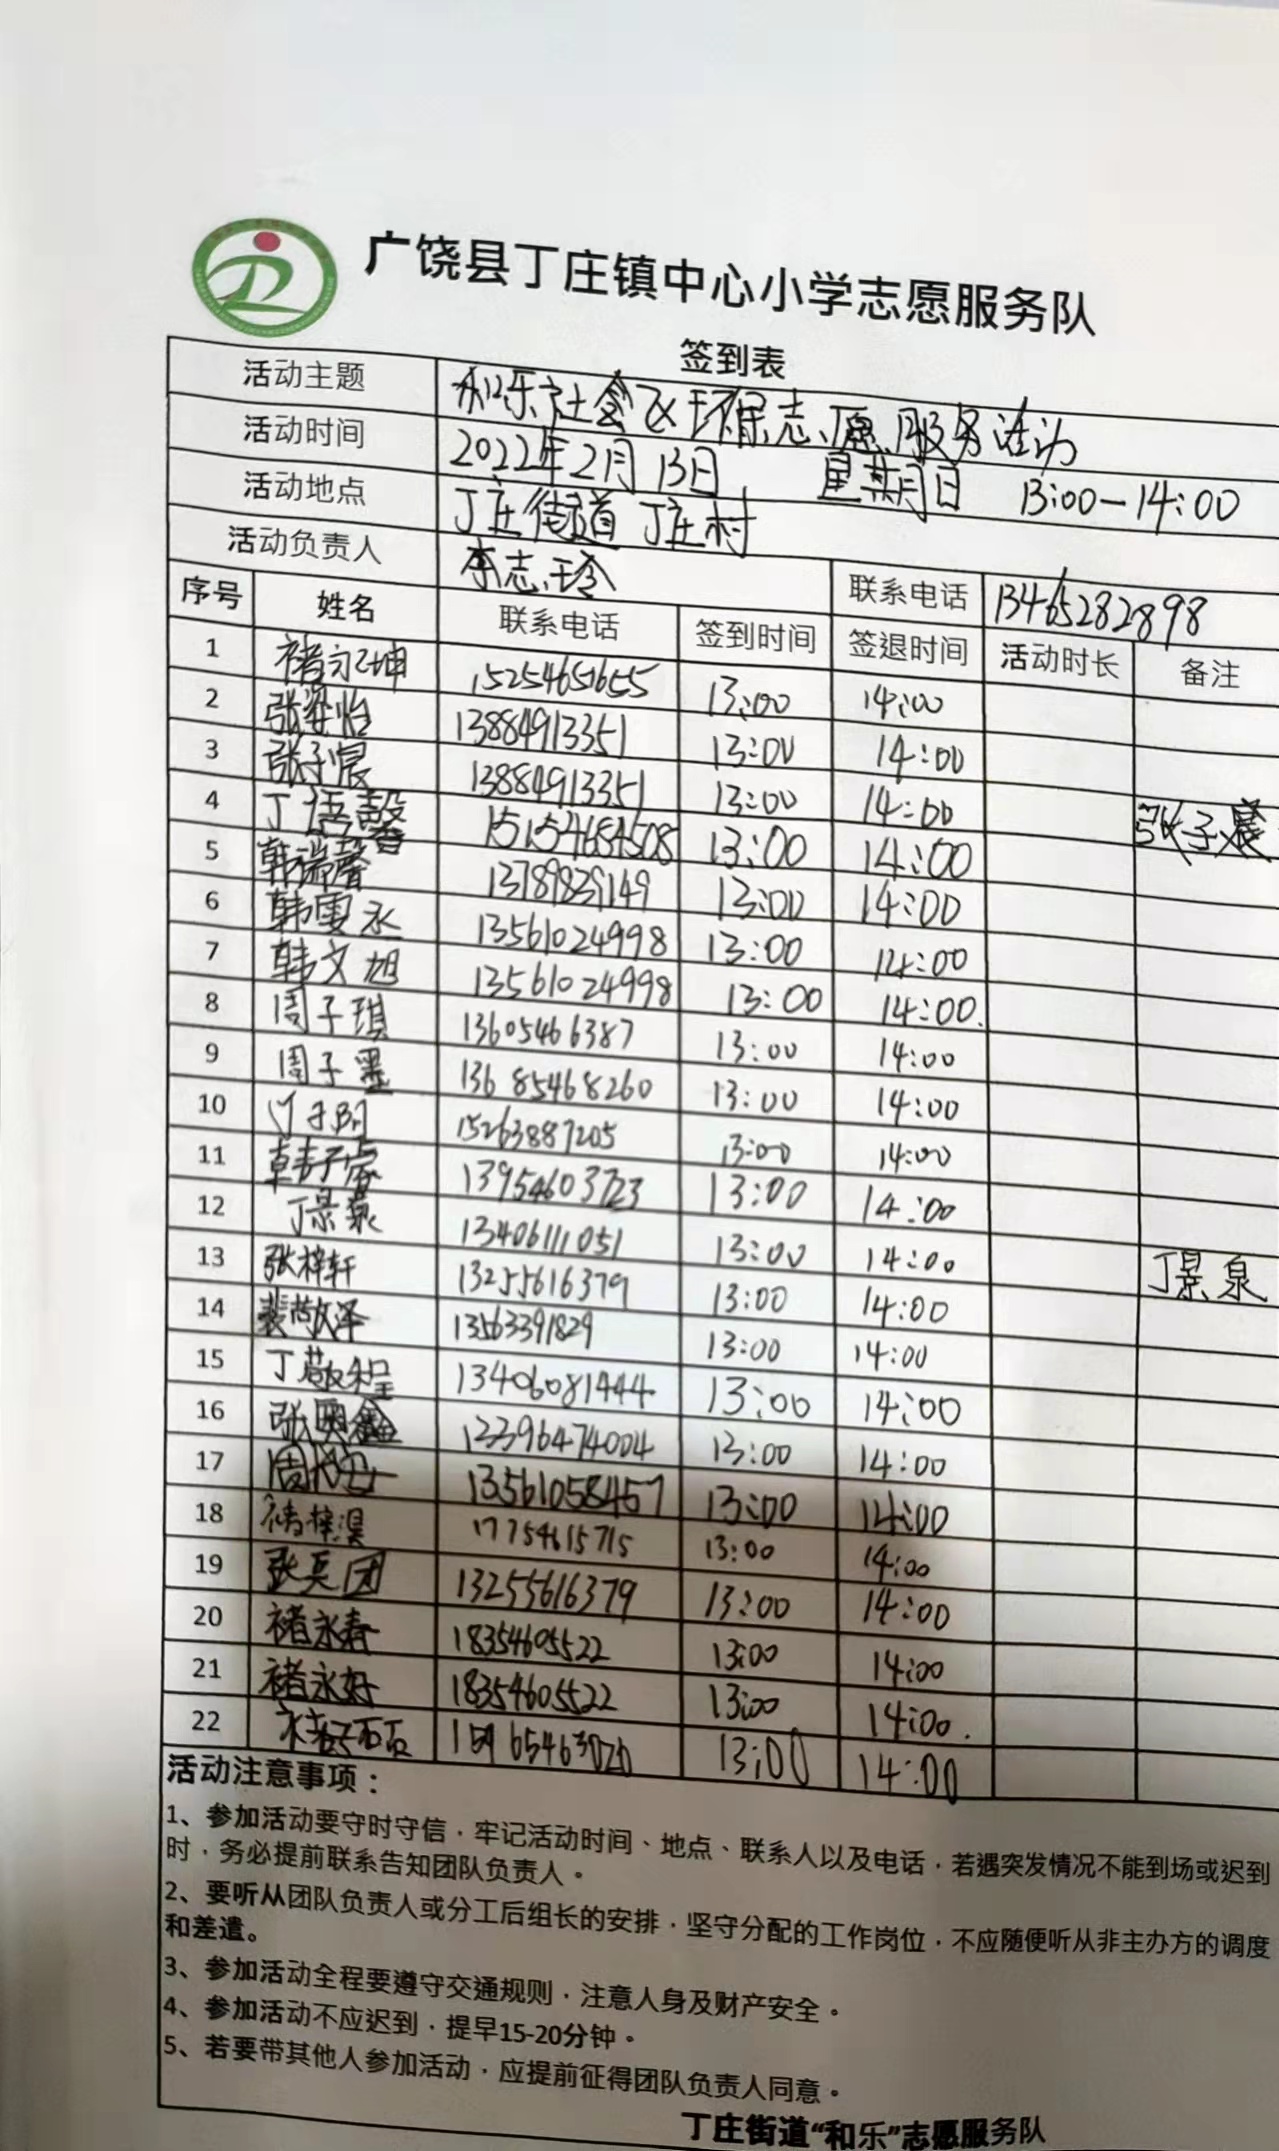 广饶县丁庄镇中心小学志愿服务队
签到表
活动主题 和乐社会区环保志愿服务活动
活动时间 2022年2月13日 星期日 13:00-14:00
活动地点 丁庄街道丁庄村
活动负责人 李志玲 联系电话 13465282898
序号 姓名 联系电话 签到时间 签退时间 活动时长 备注
1 褚永坤 15254651655 13:00 14:00
2 张姿怡 13884913351 13:00 14:00
3 张子宸 13884913351 13:00 14:00 张子宸
4 丁语馨 15154684508 13:00 14:00
5 韩瑞馨 13789839149 13:00 14:00
6 韩雯丞 13561024998 13:00 14:00
7 韩文旭 13561024998 13:00 14:00.
8 周子琪 13605466387 13:00 14:00
9 周子墨 13685468260 13:00 14:00
10 15263887205 13:00 14:00
11 韩子睿 13954603723 13:00 14:00
12 丁景泉 13406111051 13:00 14:00 丁景泉
13 张梓轩 13255616379 13:00 14:00
14 裴敬泽 13563391829 13:00 14:00
15 丁敬程 13406081444 13:00 14:00
16 张奥鑫 12396474004 13:00 14:00
17 13561058457 13:00 14:00
18 褚梓淏 17754615715 13:00 14:00
19 张兵团 13255616379 13:00 14:00
20 褚永春 18354605522 13:00 14:00
21 褚永好 18354605522 13:00 14:00.
22 13:00 14:00
活动注意事项：
1、参加活动要守时守信，牢记活动时间、地点、联系人以及电话，若遇突发情况不能到场或迟到
时，务必提前联系告知团队负责人。
2、要听从团队负责人或分工后组长的安排，坚守分配的工作岗位，不应随便听从非主办方的调度
和差遣。
3、参加活动全程要遵守交通规则，注意人身及财产安全。
4、参加活动不应迟到，提早15-20分钟。
5、若要带其他人参加活动，应提前征得团队负责人同意。
丁庄街道“和乐”志愿服务队